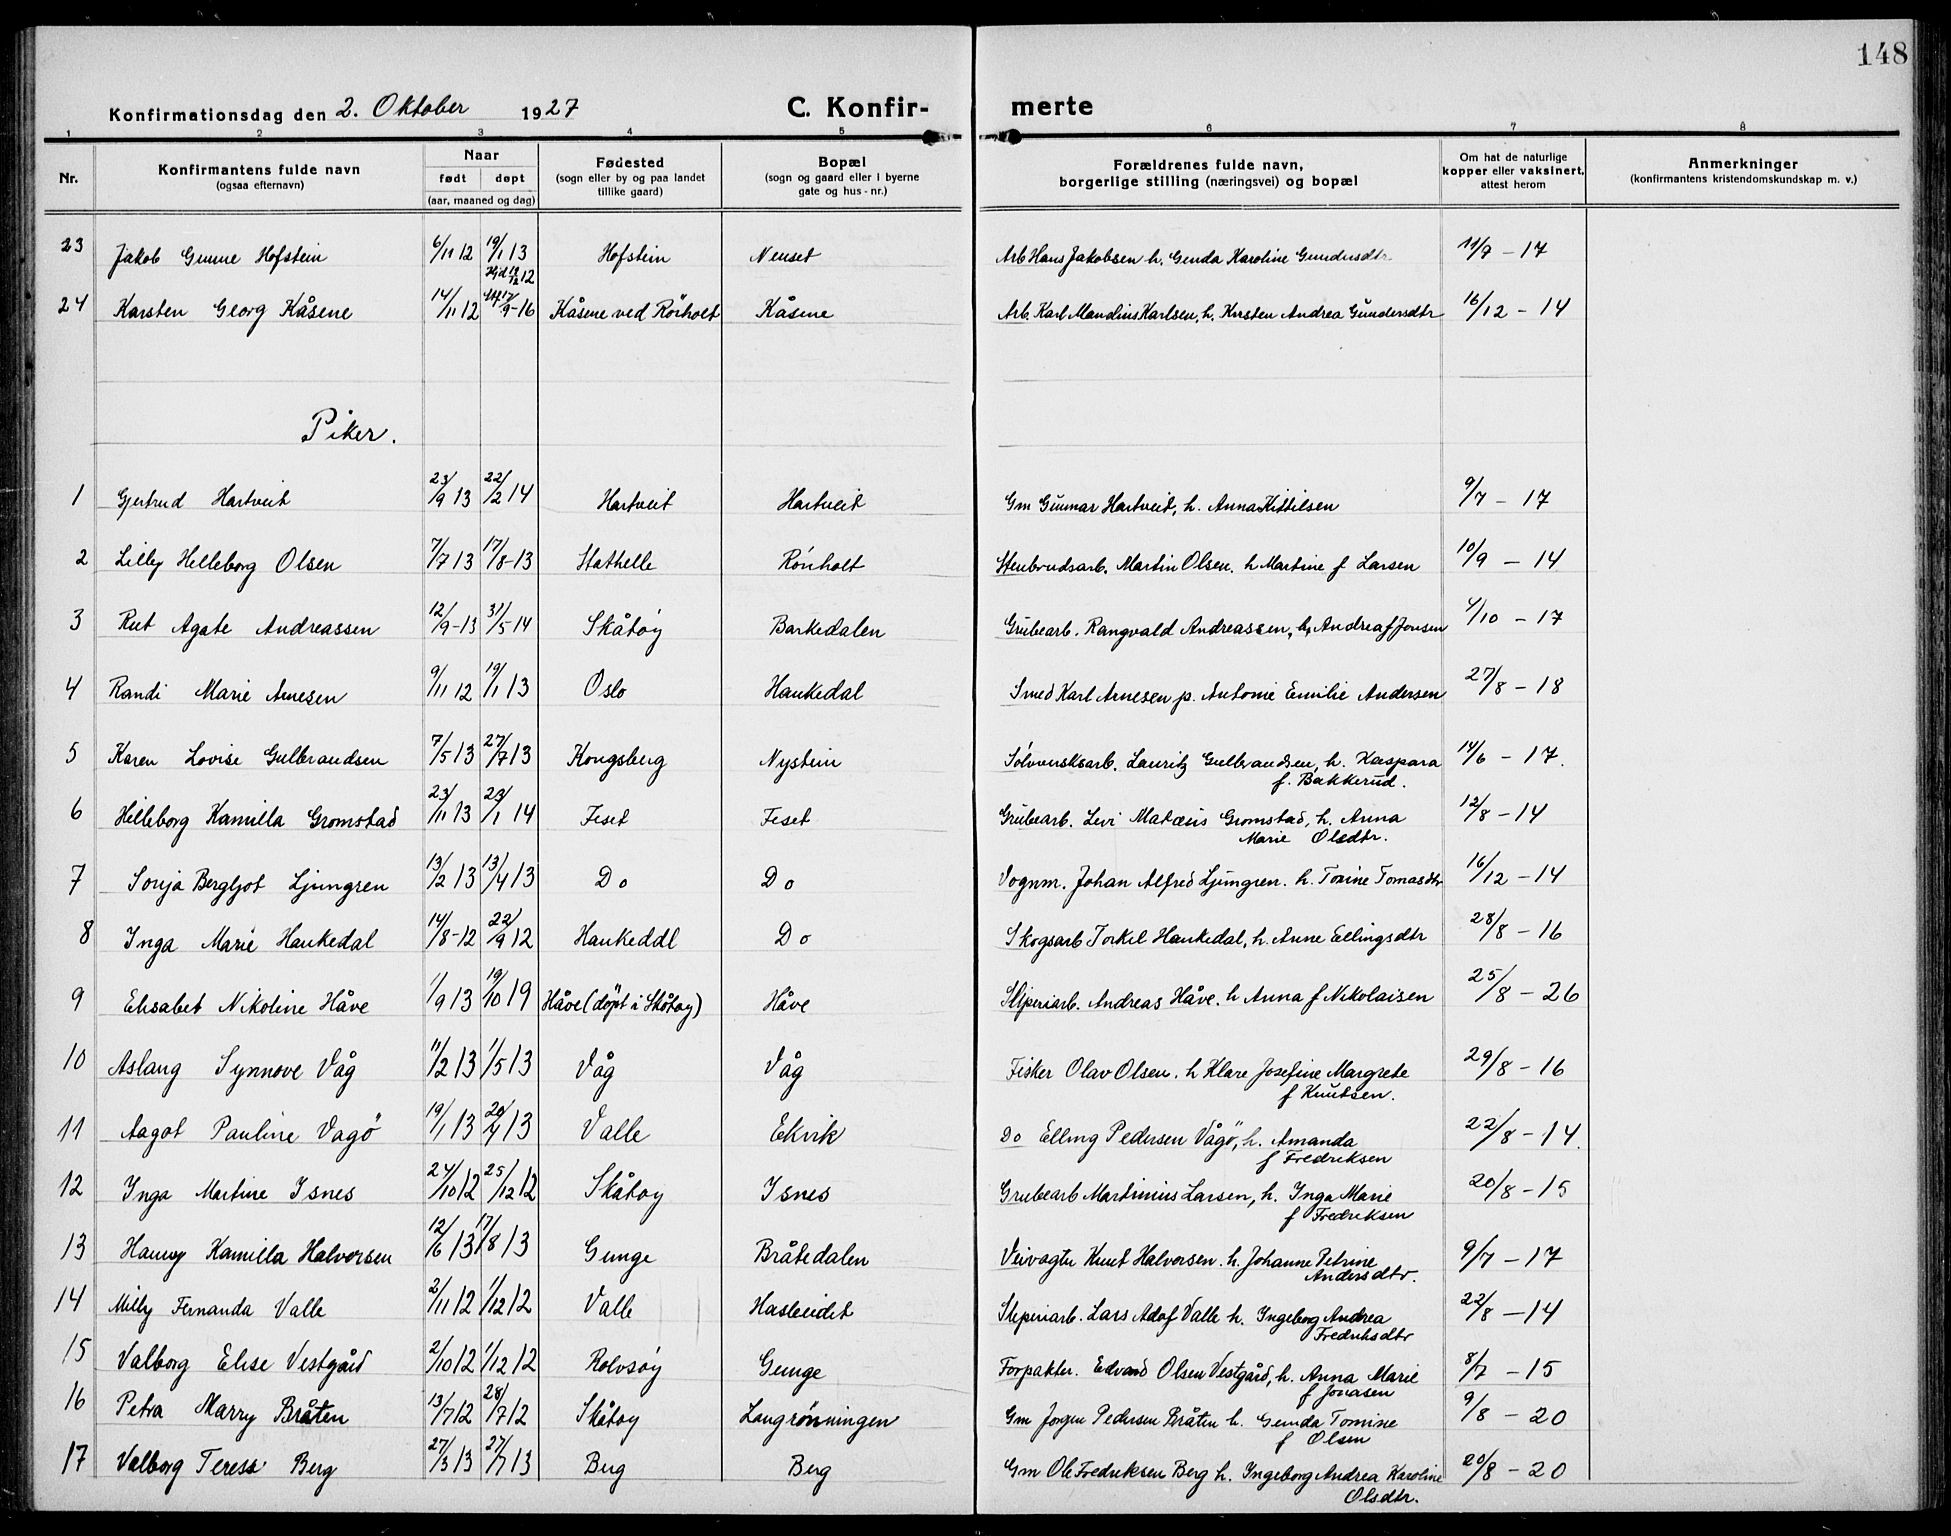 148
Konfirmationsdag den 2. Oktober 1927 C. Konfir- merte
1 2 3 4 5 6 7 8
Nr. Konfirmantens fulde navn (ogsaa efternavn) Naar født døpt (aar, maaned og dag) Fødested (sogn eller by og paa landet tillike gaard) Bopæl (sogn og gaard eller i byerne gate og hus-nr.) Forældrenes fulde navn, borgerlige stilling (næringsvei) og bopæl Om hat de naturlige kopper eller vaksinert, attest herom Anmerkninger (konfirmantens kristendomskundskap m. v.)
23 Jakob Gunne Hofstein 6/11 12 19/1 13 Hofstein Neuset Arb Hans Jakobsen h. Genda Karoline Gundersdtr 11/9 - 17
24 Karsten Georg Kåsene 14/11 12 9-16 Kåsene ved Rörholt Kåsene Arb. Karl Mandius Karlsen, h. Kirsten Andrea Gundersdtr 16/12 - 14
Piker.
1 Gjertrud Hartveit 23/9 13 22/2 14 Hartveit Hartveit Gm Gunnar Hartveit, h. Anna Kittilsen 9/7 - 17
2 Lilly Helleborg Olsen 7/7 13 17/8-13 Stathelle Rönholt Stenbrudsarb. Martin Olsen. h Martine f Larsen 10/9 - 14
3 Rut Agate Andreassen 12/9-13 31/5-14 Skåtøy Barkedalen Grubearb. Rangvald Andreassen, h. Andrea f Jonsen 4/10 - 17
4 Randi Marie Arnesen 9/11 12 19/1 13 Oslo Haukedal Smed Karl Arnesen p. Antonie Emilie Andersen 27/8 - 18
5 Karen Lovise Gulbrandsen 7/5 13 27/7 13 Kongsberg Nystein Sølvverksarb. Lauritz Gulbrandsen, h. Kaspara
f. Bakkerud. 14/6 - 17.
6 Hilleborg Kamilla Gromstad 23/11 13 23/1 14 Feset Feset Grubearb. Levi Matæus Gromstad, h. Anna
Marie Olsdtr. 12/8 - 14
7 Sonja Bergljot Ljungren 13/2 13 13/4 13 Do Do Vognm. Johan Alfred Ljungren. h. Tomine Tomasdtr 16/12 - 14
8 Inga Marie Haukedal 14/8-12 22/9 12 Haukeddl Do Skogsarb Torkel Haukedal, h. Anne Ellingsdtr 28/8 - 16
9 Elisabet Nikoline Håve 1/9 13 19/10 19 Håve (döpt i Skåtøy) Håve Sliperiarb. Andreas Håve. h Anna f Nikolaisen 25/8 - 26
10 Aslaug Synnove Våg 11/2 13 1/5 13 Våg Våg Fisker Olav Olsen. h Klare Josefine Margrete
f Knutsen. 29/8 - 16
11 Aagot Pauline Vagö 19/1 13 20/4 13 Valle Ekvik Do Elling Pedersen Vågö, h. Amanda
f Fredriksen 22/8 - 14.
12 Inga Martine Isnes 24/10 12 25/12 12 Skåtøy Isnes Grubearb Martinius Larsen, h. Inga Marie
f Fredriksen 20/8 - 15
13 Hanny Kamilla Halvorsen 12/6 13 17/8 13 Gunge Bråtedalen Veivagter Knut Halvorsen. h. Johanne Petrine
Andersdtr. 9/7 - 17
14 Milly Fernanda Valle 2/11 12 1/12 12 Valle Hasleidet Sliperiarb. Lars Adolf Valle h. Ingeborg Andrea
Fredriksdtr 22/8 - 14
15 Valborg Elise Vestgård 2/10 12 1/12 12 Rolvsøy Gunge Forpakter. Edvard Olsen Vestgård, h. Anna Marie
f Jonasen 8/7 - 15
16 Petra Marry Bråten 13/7 12 28/7 12 Skåtøy Langrönningen Gm Jørgen Pedersen Bråten h. Gunda Tomine
f Olsen 9/8 - 20
17 Valborg Terese Berg 27/3 13 27/7 13 Berg Berg Gm Ole Fredriksen Berg h. Ingeborg Andrea Karoline
Olsdtr. 20/8 - 20